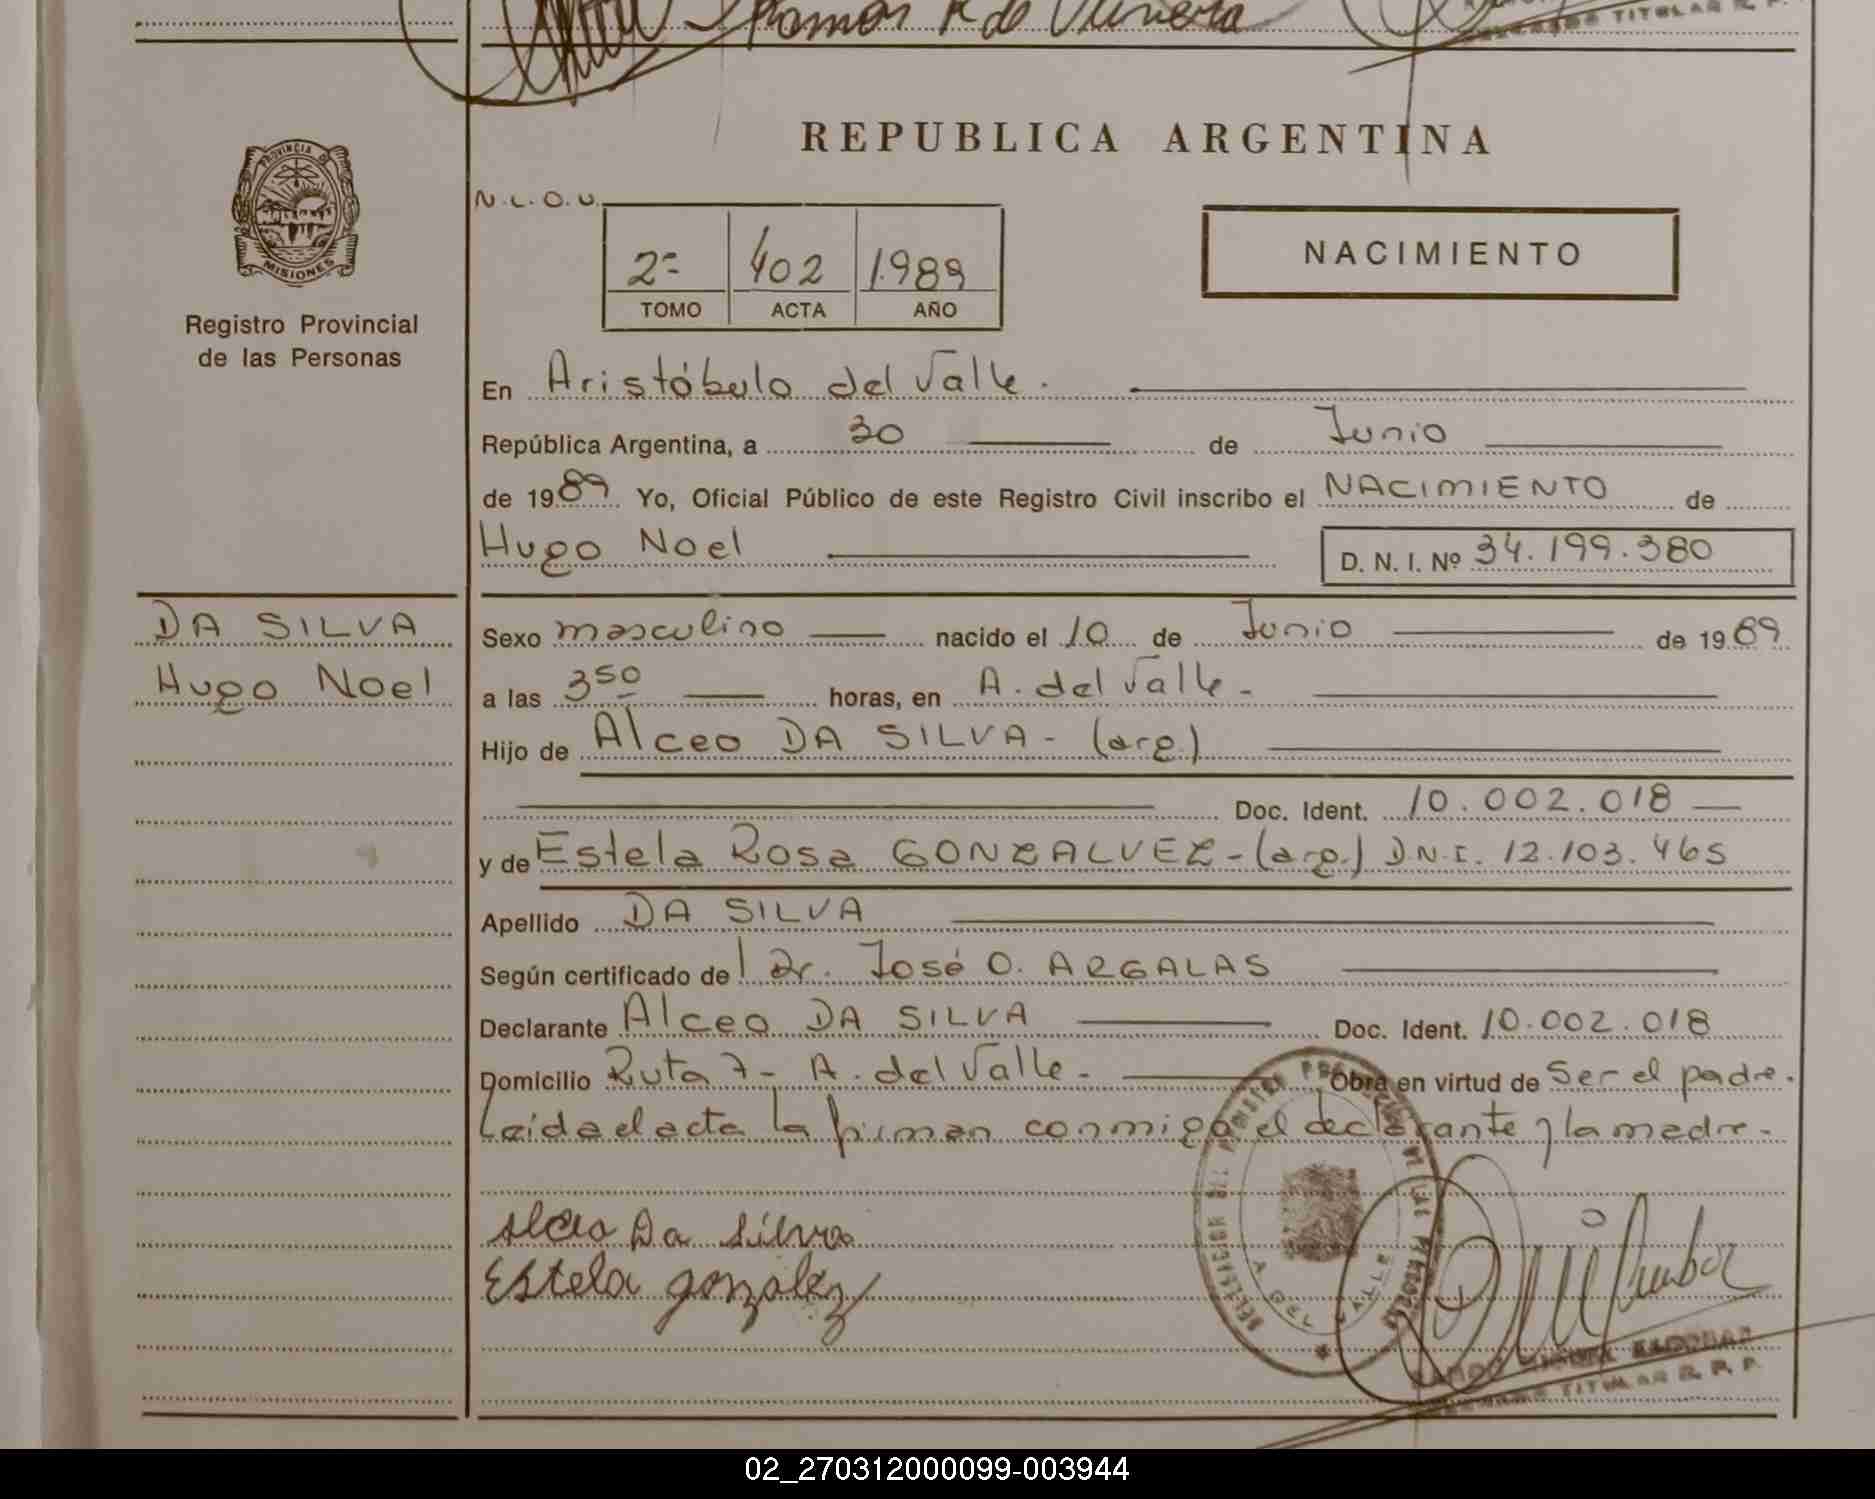 Ramon R de Olivera
TITULAR R. P.
PROVINCIA DE
MISIONES
Registro Provincial
de las Personas
REPUBLICA ARGENTINA
N.L.O.U.
2- 402 1989
TOMO ACTA AÑO
NACIMIENTO
En Aristóbulo del Valle.
República Argentina, a 30 de Junio
de 1989 Yo, Oficial Público de este Registro Civil inscribo el NACIMIENTO de
Hugo Noel D. N. I. Nº 34.199.380
DA SILVA
Hugo Noel
Sexo masculino nacido el 10 de Junio de 1989
a las 3 50 horas, en A. del Valle -
Hijo de Alceo DA SILVA - (arg.)
Doc. Ident. 10.002.018
y de Estela Rosa GONZALVEZ - (arg.) D.N.I. 12.103.465
Apellido DA SILVA
Según certificado del Dr. José O. ARGALAS
Declarante Alceo DA SILVA Doc. Ident. 10.002.018
Domicilio Ruta 7 - A. del Valle - Obra en virtud de Ser el padre.
Leida el acta la firman conmigo el declarante y la madre -
Alceo Da Silva
Estela gonzalez
A DEL VALLE
MIGUEL ESCOBAR
TITULAR R. P. P.
02_270312000099-003944